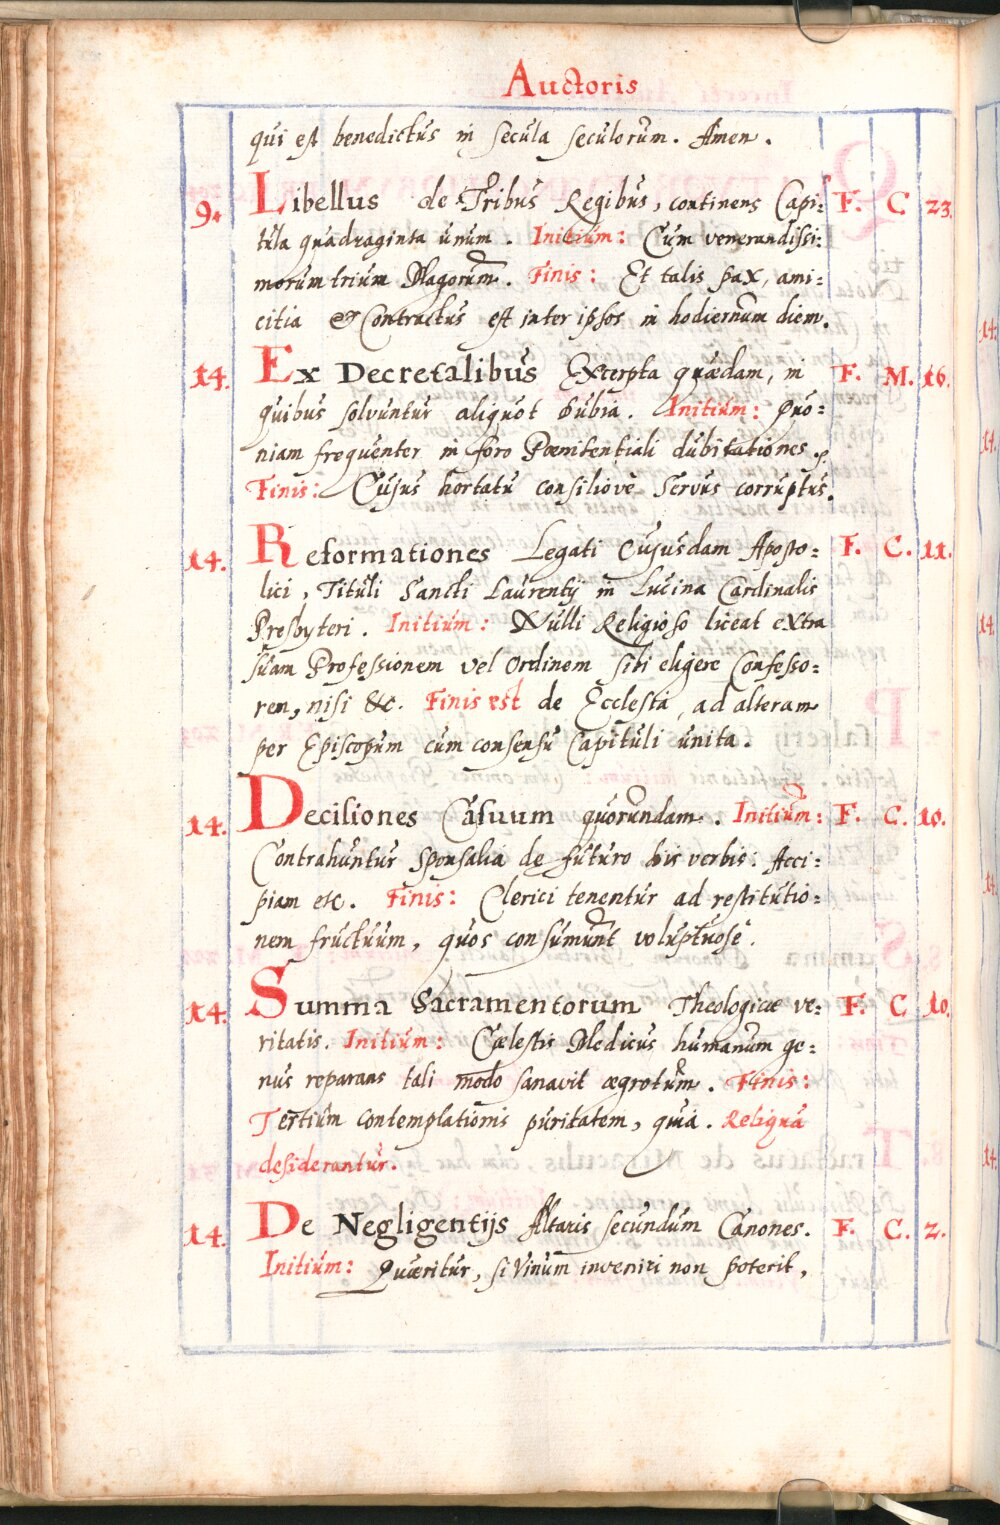 Auctoris
qui est benedictus in secula seculorum. Amen.
9. Libellus de Tribus Regibus, continens Capi: F. C. 23.
tula quadraginta unum. Initium: Cum venerandissi:
morum trium Magorum. Finis: Et talis pax, ami:
citia & Contractus est inter ipsos in hodiernum diem.
14. Ex Decretalibus Excerpta quædam, in F. M. 16.
quibus solvuntur aliquot dubia. Initium: Quo:
niam frequenter in foro Pœnitentiali dubitationes.
Finis: Cujus hortatu consiliove Servus corruptus.
14. Reformationes Legati Cujusdam Aposto: F. C. 11.
lici, Tituli Sancti Laurentij in Lucina Cardinalis
Presbyteri. Initium: Nulli Religioso liceat extra
suam Professionem vel Ordinem sibi eligere Confesso:
rem, nisi &c. Finis est de Ecclesia, ad alteram
per Episcopum cum consensu Capituli unita.
14. Decisiones Casuum quorundam. Initium: F. C. 10.
Contrahuntur Sponsalia de futuro his verbis: Acci:
piam etc. Finis: Clerici tenentur ad restitutio:
nem fructuum, quos consumunt voluptuosè.
14. Summa Sacramentorum Theologicæ ve: F. C. 10.
ritatis. Initium: Cælestis Medicus humanum ge:
nus reparans tali modo sanavit ægrotum. Finis:
Tertium contemplationis puritatem, quia. Reliqua
desiderantur.
14. De Negligentijs Altaris secundum Canones. F. C. 2.
Initium: Quæritur, si Vinum inveniri non poterit,